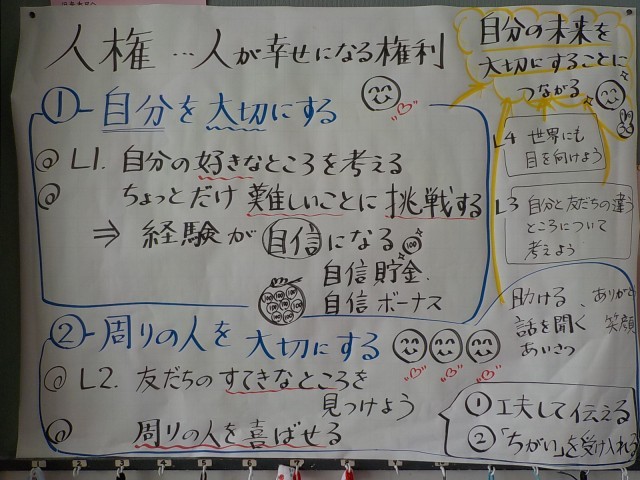 人権…人が幸せになる権利
①-自分を大切にする
◎ L1. 自分の好きなところを考える
◎ ちょっとだけ難しいことに挑戦する
⇒ 経験が自信になる 100
自信貯金.
自信ボーナス
100 100 100 100 100 100 100
②-周りの人を大切にする
◎ L2. 友だちのすてきなところを
見つけよう
◎ 周りの人を喜ばせる
自分の未来を
大切にすることに
つながる
L4 世界にも
目を向けよう
L3 自分と友だちの違う
ところについて
考えよう
助ける、ありがとう
話を聞く 笑顔
あいさつ
①工夫して伝える
②「ちがい」を受け入れる